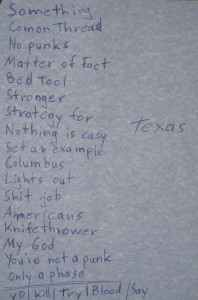 Something
Comon Thread
No punks
Matter of fact
Bed tool
Stronger
Strategy for
Nothing is easy
Set an example
Texas
Columbus
Lights out
Shit job
Americans
Knifethrower
My God
You're not a punk
only a phase
VP/Kill/Try/Blood/Say